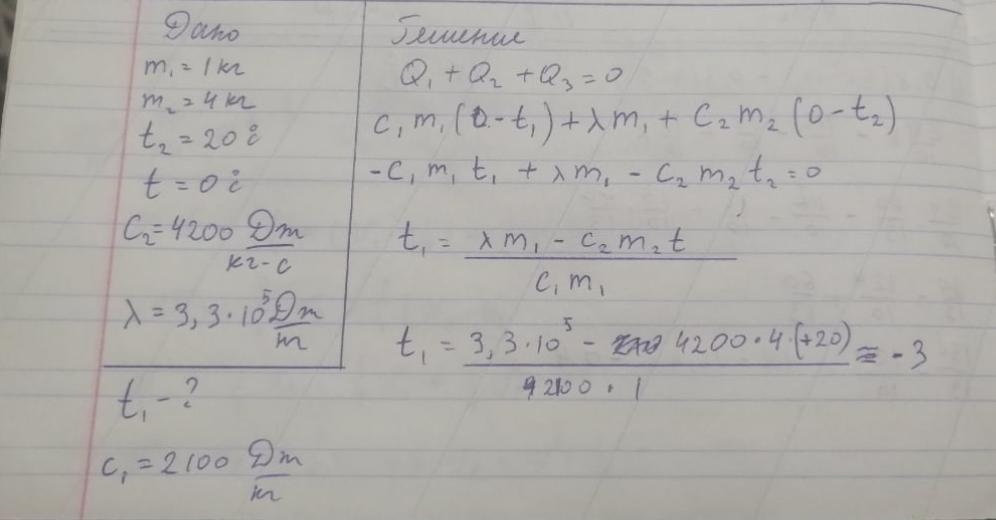 Дано
m₁ = 1 кг
m₂ = 4 кг
t₂ = 20 °C
t = 0 °C
C₂ = 4200 Дж/кг-с
λ = 3,3 · 10⁵ Дж/кг
t₁ - ?
c₁ = 2100 Дж/кг
Решение
Q₁ + Q₂ + Q₃ = 0
c₁ m₁ (0 - t₁) + λ m₁ + C₂ m₂ (0 - t₂)
- c₁ m₁ t₁ + λ m₁ - c₂ m₂ t₂ = 0
t₁ = λ m₁ - c₂ m₂ t / c₁ m₁
t₁ = 3,3 · 10⁵ - 4200 · 4 · (+20) / 2100 · 1 ≈ - 3